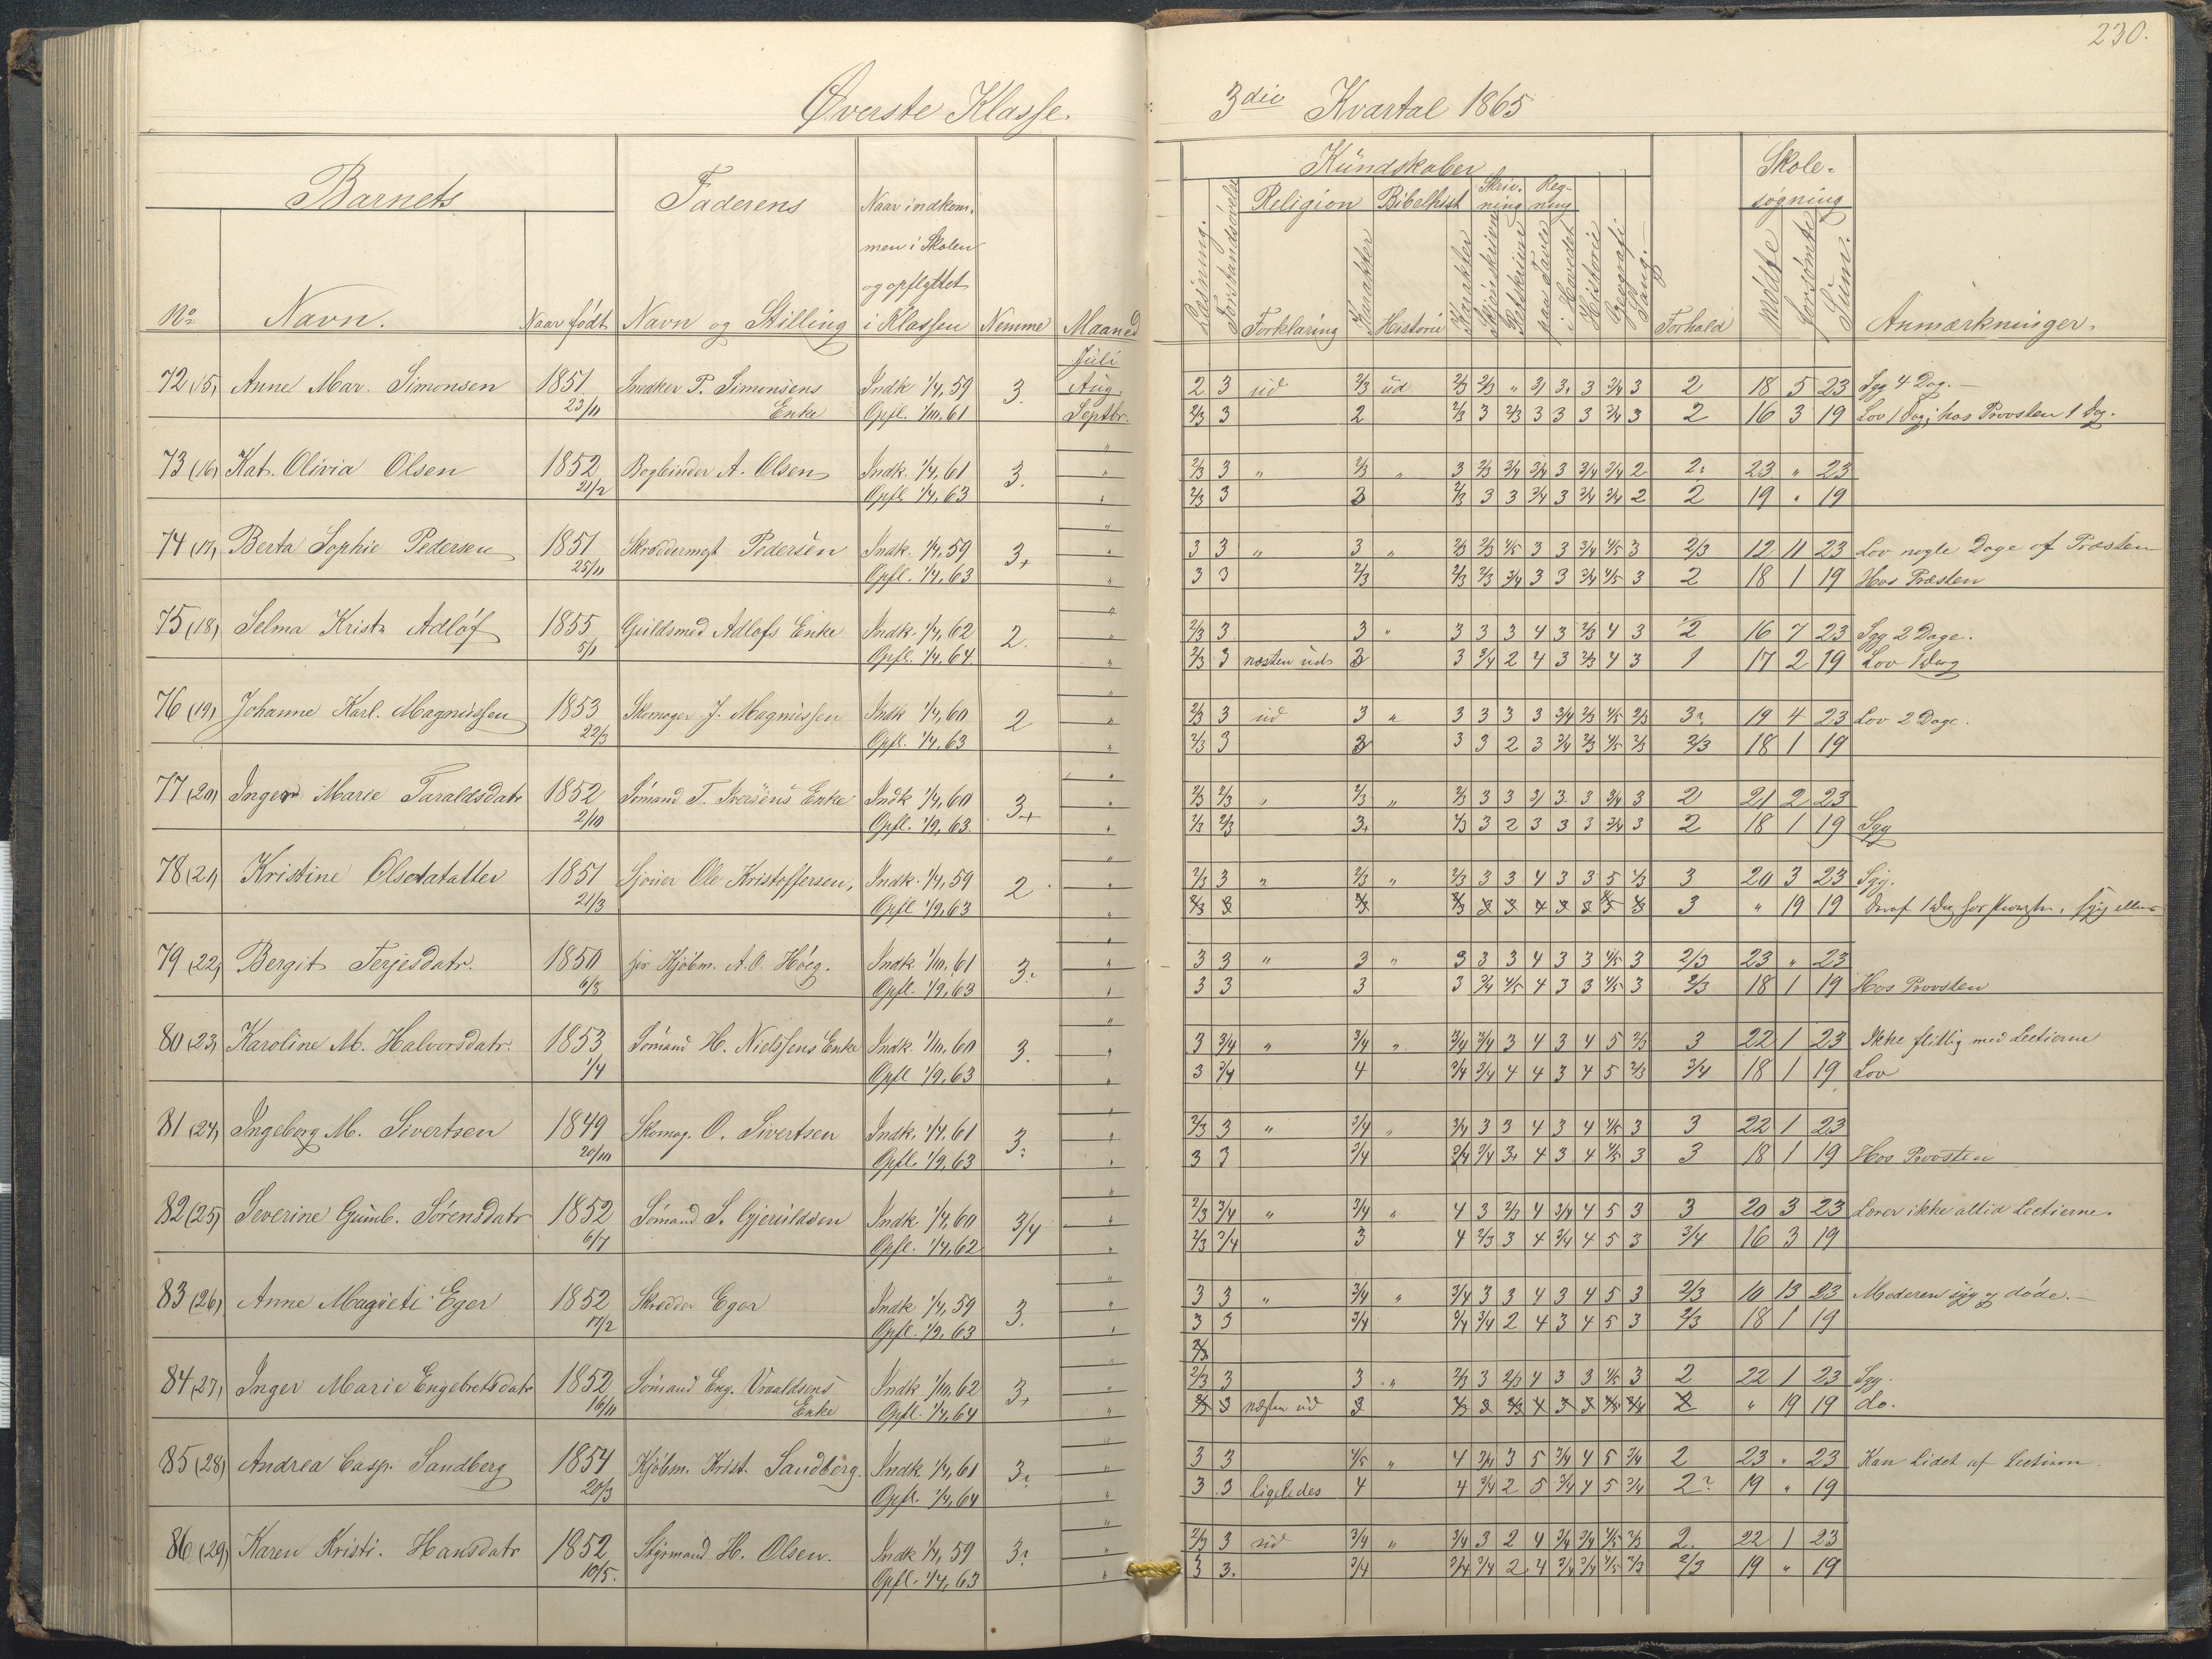 230.
Øverste Klasse. 3die Kvartal 1865
Barnets Faderens Naar indkom- Kundskaber Skole-
men i Skolen Religion Bibelhist Skriv- Reg- søgning
og opflyttet ning ning
No Navn. Naar født Navn og Stilling i Klassen Nemme Maaned Læsning. Forstandsøvelse Forklaring Karakter Historie Karakter Skjönskriven Retskrivni paa Tavle i Hovedet Historie Geografi Sang. Forhold Mødte forsømte Sum. Anmærkninger.
Juli
72 (15) Anne Mar. Simonsen 1851 Snedker P. Simonsens Indk 1/4, 59 3. Aug. 2 3 ud 2/3 ud 2/3 2/3 " 3/ 3. 3 3/4 3 2 18 5 23 Syg 4 Dag.
23/11 Enke Opfl. 1/10, 61 Septbr. 2/3 3 2 2/3 3 2/3 3 3 3 3/4 3 2 16 3 19 Lov 1 Dag; hos Provsten 1 Dag.
73 (16) Kat. Olivia Olsen 1852 Bogbinder A. Olsen Indk. 1/4, 61 3. " 2/3 3 " 2/3 " 3 2/3 3/4 3/4 3 3/4 3/4 2 2. 23 " 23
21/2 Opfl 1/4, 63 " 2/3 3 3 2/3 3 3 3/4 3 3/4 3/4 2 2 19 " 19
74 (17) Berta Sophie Pedersen 1851 Skræddermgt Pedersen Indk. 1/4, 59 3+ " 3 3 " 3 " 2/3 2/3 4/5 3 3 3/4 4/5 3 2/3 12 11 23 Lov nogle Dage af Præsten
25/11 Opfl. 1/4, 63 " 3 3 2/3 2/3 2/3 3/4 3 3 3/4 4/5 3 2 18 1 19 Hos Præsten
75 (18) Selma Krist. Adlöf 1855 Guldsmed Adlofs Enke Indk. 1/4, 62 2. " 2/3 3 3 " 3 3 3 4 3 2/3 4 3 2 16 7 23 Syg 2 Dage.
5/1 Opfl. 1/4, 64 " 2/3 3 næsten ud 3 3 3/4 2 4 3 2/3 4 3 1 17 2 19 Lov 1 Dag
76 (19) Johanne Karl. Magnussen 1853 Skomager J. Magnussen Indk 1/4, 60 2 " 2/3 3 ud 3 " 3 3 3 3 3/4 2/3 4/5 2/3 3? 19 4 23 Lov 2 Dage.
22/3 Opfl. 1/4, 63 " 2/3 3 3 3 3 2 3 3/4 2/3 4/5 2/3 2/3 18 1 19
77 (20) Inger Marie Taraldsdatr 1852 Sömand T. Iversens Enke Indk 1/4, 60 3+ " 2/3 2/3 " 2/3 " 2/3 3 3 3/ 3. 3 3/4 3 2 21 2 23
2/10 Opfl. 1/9, 63. " 2/3 2/3 3+ 2/3 3 2 3 3 3 3/4 3 2 18 1 19 Syg
78 (21) Kristine Olsdatatter 1851 Sjouer Ole Kristoffersen, Indk. 1/4, 59 2 " 2/3 3 " 2/3 " 2/3 3 3 4 3 3 5 2/3 3 20 3 23 Syg.
21/3 Opfl 1/9, 63 " 3 " 19 19 Deraf 1 Dag hos Provsten. Syg ellers
79 (22) Bergit Terjesdatr. 1850 hos Kjöbm. A. O. Höeg. Indk. 1/10, 61 3? " 3 3 " 3 " 3 3 3 4 3 3 4/5 3 2/3 23 " 23
6/8 Opfl. 1/9, 63 " 3 3 3 3 3/4 4/5 4 3 3 4/5 3 2/3 18 1 19 Hos Provsten
80 (23) Karoline M. Halvorsdatr. 1853 Sömand H. Nielssens Enke Indk. 1/10, 60 3. " 3 3/4 " 3/4 " 3/4 3/4 3 4 3 4 5 2/3 3 22 1 23 Ikke flittig med Lectierne
1/4 Opfl 1/9, 63 " 3 3/4 4 3/4 3/4 4 4 3 4 5 2/3 3/4 18 1 19 Lov
81 (24) Ingeborg M. Sivertsen 1849 Skomag. O. Sivertsen Indk. 1/4, 61 3? " 2/3 3 " 3/4 " 3/4 3 3 4 3 4 4/5 3 3 22 1 23
20/10 Opfl. 1/9, 63 " 3 3 3/4 3/4 3/4 3+ 4 3 4 4/5 3 3 18 1 19 Hos Provsten
82 (25) Severine Gumb. Sörensdatr 1852 Sömand S. Gjeruldsen Indk. 1/4, 60 3/4 " 2/3 3/4 " 3/4 " 4 3 2/3 4 3/4 4 5 3 3 20 3 23 Lærer ikke altid Lectierne.
6/7 Opfl. 1/4, 62 " 2/3 3/4 3 4 2/3 3 4 3/4 4 5 3 3/4 16 3 19
83 (26) Anne Magrete Eger 1852 Skrædder Eger Indk 1/4, 59 3. " 3 3 " 3/4 " 3/4 3 3 4 3 4 5 3 2/3 10 13 23 Moderen syg og döde.
17/2 Opfl. 1/9, 63 " 3 3 3/4 3/4 3/4 2 4 3 4 5 3 2/3 18 1 19
84 (27) Inger Marie Engebretsdatr 1852 Sömand Eng. Vraaldsens Indk 1/10, 62 3+ " 2/3 3 3 " 2/3 3 2/3 4 3 3 4/5 3 2 22 1 23 Syg.
16/11 Enke Opfl. 1/4, 64 " 3 næsten ud 3 2 " 19 19 do.
85 (28) Andrea Casp. Sandberg 1854 Kjöbm. Krist. Sandberg. Indk 1/4, 61 3? " 3 3 4/5 " 4 3/4 3 5 3/4 4 5 3/4 2 23 " 23 Kan Lidet af Lectierne.
20/3 Opfl. 1/4, 64 " 3 3 ligeledes 4 4 3/4 2 5 3/4 4 5 3/4 2? 19 " 19
86 (29) Karen Kristi. Hansdatr 1852 Styrmand H. Olsen. Indk 1/4, 59 3? " 2/3 3 ud 3/4 " 3/4 3 2 4 3/4 3/4 4/5 2/3 2. 22 1 23
10/5. Opfl. 1/4, 63 " 3 3. 3/4 3/4 3/4 2 4 3/4 3/4 4/5 2/3 2/3 19 " 19